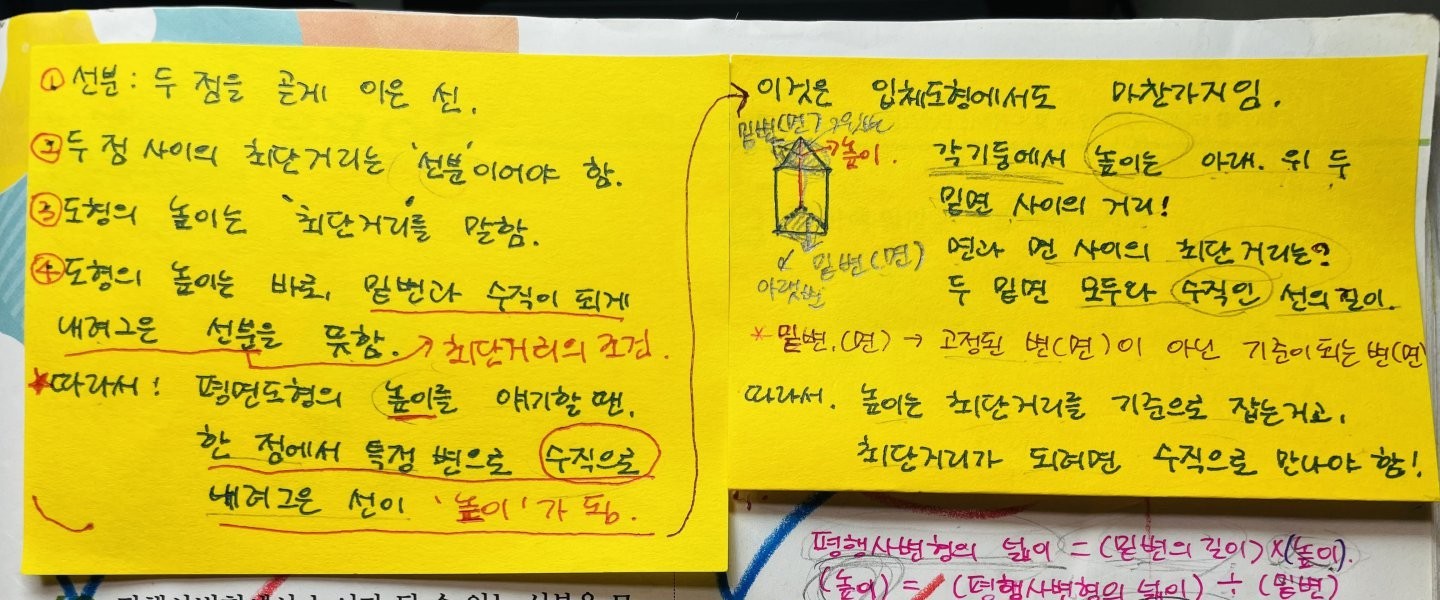 ① 선분: 두 점을 곧게 이은 선.
② 두 점 사이의 최단거리는 '선분'이어야 함.
③ 도형의 높이는 '최단거리'를 말함.
④ 도형의 높이는 바로, 밑변과 수직이 되게
내려그은 선분을 뜻함. → 최단거리의 조건.
* 따라서! 평면도형의 높이를 얘기할 땐,
한 점에서 특정 변으로 수직으로
내려그은 선이 '높이'가 됨.
이것은 입체도형에서도 마찬가지임.
밑변(면)
높이.
각기둥에서 높이는 아래. 위 두
밑면 사이의 거리!
면과 면 사이의 최단거리는?
밑변(면)
아랫변
두 밑면 모두와 수직인 선의 길이.
* 밑변.(면) → 고정된 변(면)이 아닌 기준이 되는 변(면
따라서. 높이는 최단거리를 기준으로 잡는거고,
최단거리가 되려면 수직으로 만나야 함!
평행사변형의 넓이 = (밑변의 길이)×(높이).
(높이) = (평행사변형의 넓이) ÷ (밑변)